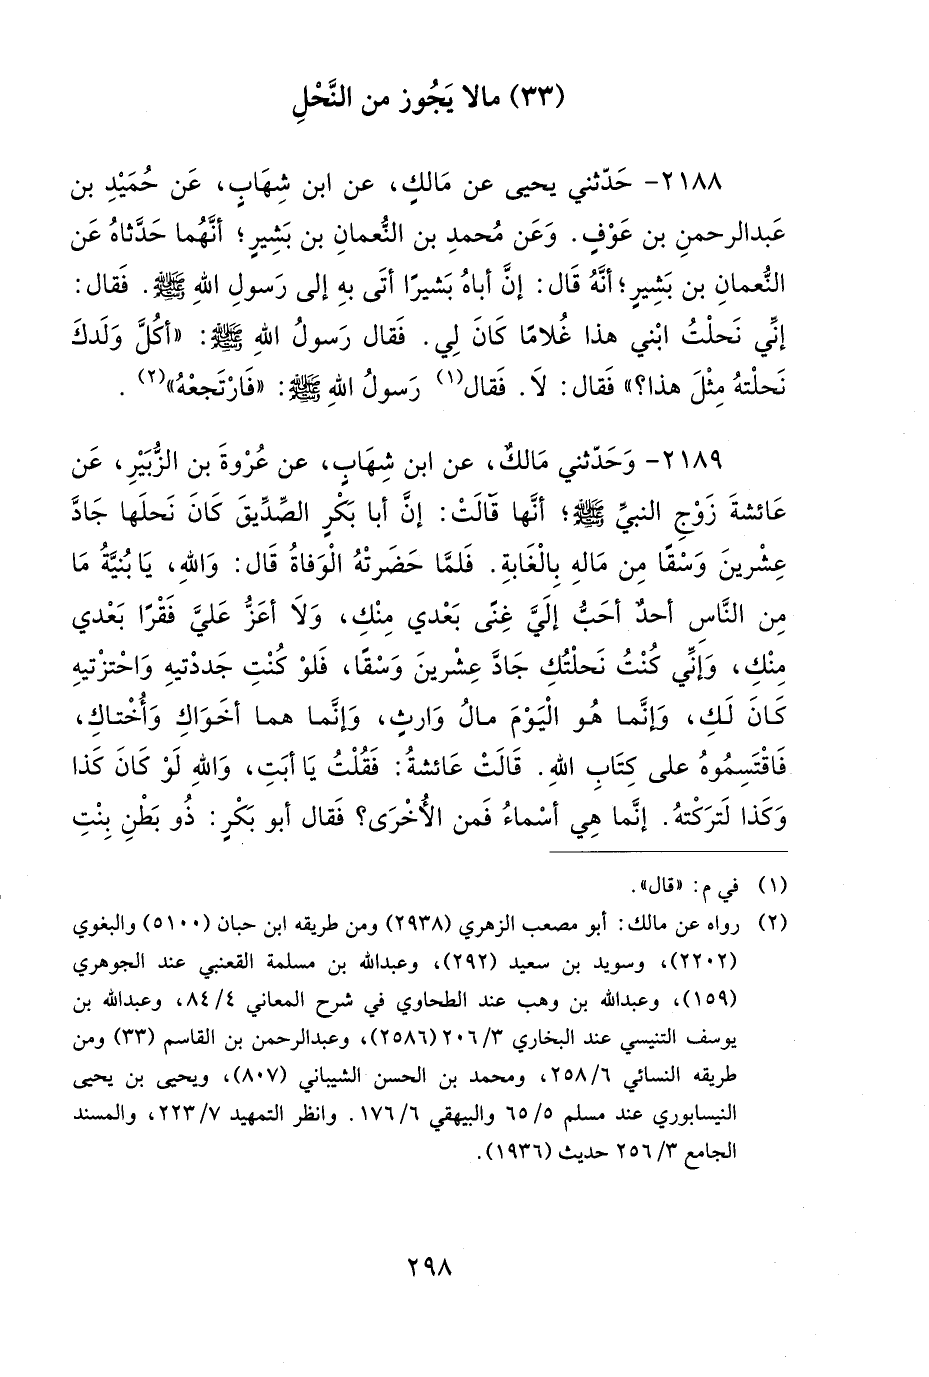 (٣٣) مالا يَجُوز من النَّحْلِ
٢١٨٨- حَدّثني يحيى عن مَالكٍ، عن ابن شِهَابٍ، عَن حُمَيْدِ بن
عَبدالرحمنِ بن عَوْفٍ. وَعَن مُحمدِ بن النُّعمانِ بن بَشِيرٍ؛ أنَّهُما حَدَّثاهُ عَن
النُّعمانِ بن بَشِيرٍ؛ أنَّهُ قَال: إنَّ أباهُ بَشيرًا أتَى بِهِ إلى رَسولِ اللهِ ﷺ. فَقال:
إنِّي نَحلْتُ ابْني هذا غُلامًا كَانَ لِي. فَقال رَسولُ اللهِ ﷺ: «أكُلَّ وَلَدكَ
نَحلْتهُ مِثْلَ هذا؟» فَقال: لاَ. فَقال(١) رَسولُ اللهِ ﷺ: «فَارْتَجعْهُ»(٢).
٢١٨٩- وَحَدّثني مَالكٌ، عن ابن شِهَابٍ، عن عُرْوةَ بن الزُّبَيْرِ، عَن
عَائشةَ زَوْجِ النبيِّ ﷺ؛ أنَّها قَالَتْ: إنَّ أبا بَكْرٍ الصِّدِّيقَ كَانَ نَحلَها جَادَّ
عِشْرينَ وَسْقًا مِن مَالهِ بِالْغَابةِ. فَلمَّا حَضَرتْهُ الْوَفاةُ قَال: وَاللهِ، يَا بُنيَّةُ مَا
مِن النَّاسِ أحدٌ أحَبُّ إلَيَّ غِنًى بَعْدي مِنْكِ، وَلاَ أعَزُّ عَليَّ فَقْرًا بَعْدي
مِنْكِ، وَإنِّي كُنْتُ نَحلْتُكِ جَادَّ عِشْرينَ وَسْقًا، فَلوْ كُنْتِ جَددْتيهِ وَاحْتزْتيهِ
كَانَ لَكِ، وَإنَّما هُو الْيَوْمَ مالُ وَارثٍ، وَإنَّما هما أخَواكِ وَأُخْتاكِ،
فَاقْتَسِمُوهُ على كِتابِ اللهِ. قَالَتْ عَائشةُ: فَقُلْتُ يَا أبَتِ، وَاللهِ لَوْ كَانَ كَذا
وَكَذا لَتركْتهُ. إنَّما هِي أسْماءُ فَمن الأُخْرَى؟ فَقال أبو بَكْرٍ: ذُو بَطْنِ بِنْتِ
(١) في م: «قال».
(٢) رواه عن مالك: أبو مصعب الزهري (٢٩٣٨) ومن طريقه ابن حبان (٥١٠٠) والبغوي
(٢٢٠٢)، وسويد بن سعيد (٢٩٢)، وعبدالله بن مسلمة القعنبي عند الجوهري
(١٥٩)، وعبدالله بن وهب عند الطحاوي في شرح المعاني ٨٤/٤، وعبدالله بن
يوسف التنيسي عند البخاري ٢٠٦/٣ (٢٥٨٦)، وعبدالرحمن بن القاسم (٣٣) ومن
طريقه النسائي ٢٥٨/٦، ومحمد بن الحسن الشيباني (٨٠٧)، ويحيى بن يحيى
النيسابوري عند مسلم ٦٥/٥ والبيهقي ١٧٦/٦. وانظر التمهيد ٢٢٣/٧، والمسند
الجامع ٢٥٦/٣ حديث (١٩٣٦).
٢٩٨